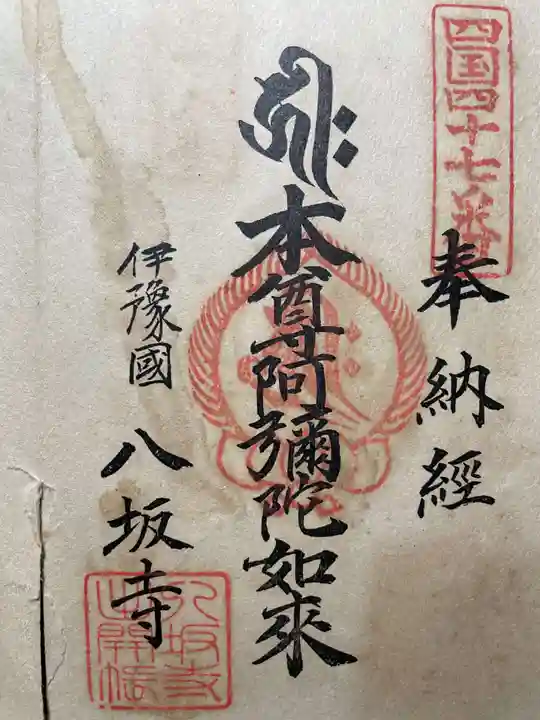 四国四十七番
奉納経
本尊阿彌陀如來
伊豫國
八坂寺
八坂寺